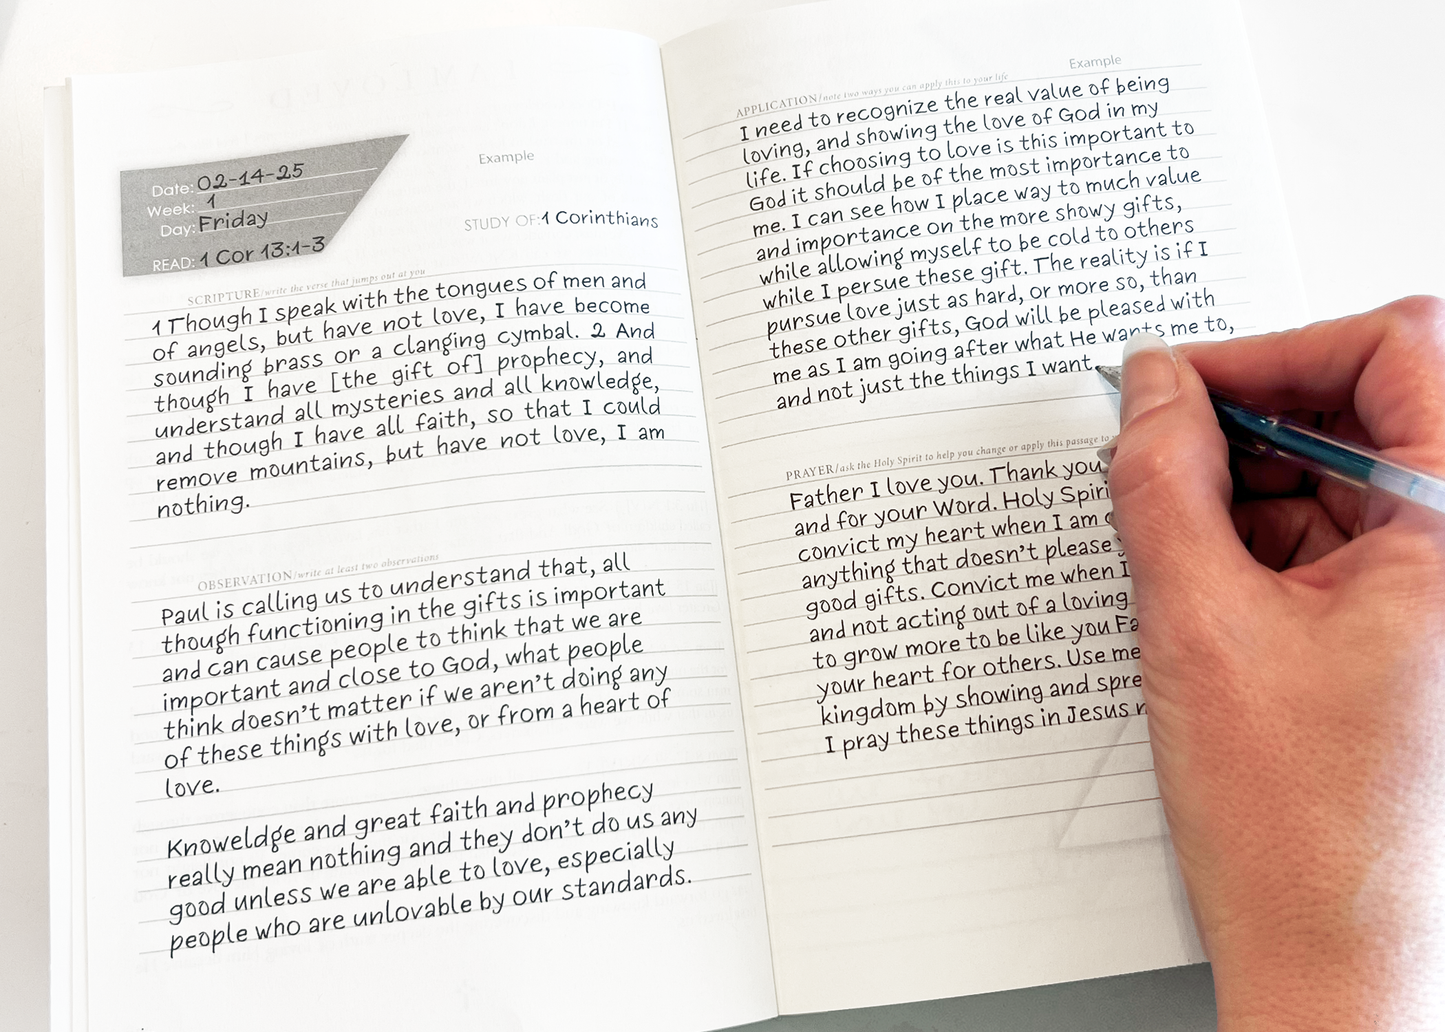 Example
Date: 02-14-25
Week: 1
Day: Friday
READ: 1 Cor 13:1-3
STUDY OF: 1 Corinthians
SCRIPTURE/write the verse that jumps out at you
1 Though I speak with the tongues of men and
of angels, but have not love, I have become
sounding brass or a clanging cymbal. 2 And
though I have [the gift of] prophecy, and
understand all mysteries and all knowledge,
and though I have all faith, so that I could
remove mountains, but have not love, I am
nothing.
OBSERVATION/write at least two observations
Paul is calling us to understand that, all
though functioning in the gifts is important
and can cause people to think that we are
important and close to God, what people
think doesn't matter if we aren't doing any
of these things with love, or from a heart of
love.
Knoweldge and great faith and prophecy
really mean nothing and they don't do us any
good unless we are able to love, especially
people who are unlovable by our standards.
Example
APPLICATION/note two ways you can apply this to your life
I need to recognize the real value of being
loving, and showing the love of God in my
life. If choosing to love is this important to
God it should be of the most importance to
me. I can see how I place way to much value
and importance on the more showy gifts,
while allowing myself to be cold to others
while I persue these gift. The reality is if I
pursue love just as hard, or more so, than
these other gifts, God will be pleased with
me as I am going after what He wants me to,
and not just the things I want.
PRAYER/ask the Holy Spirit to help you change or apply this passage to
Father I love you. Thank you
and for your Word. Holy Spiri
convict my heart when I am
anything that doesn't please
good gifts. Convict me when I
and not acting out of a loving
to grow more to be like you Fa
your heart for others. Use me
kingdom by showing and spre
I pray these things in Jesus